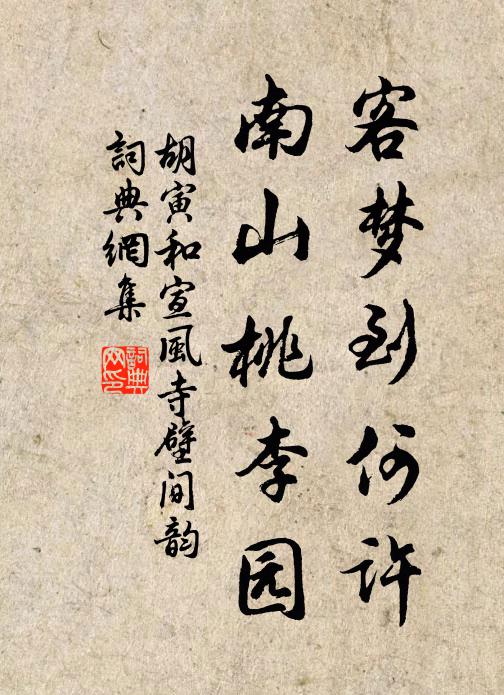 客梦到何许
南山桃李园
胡寅和宣風寺壁间韵
詞典網集
詞典
网印